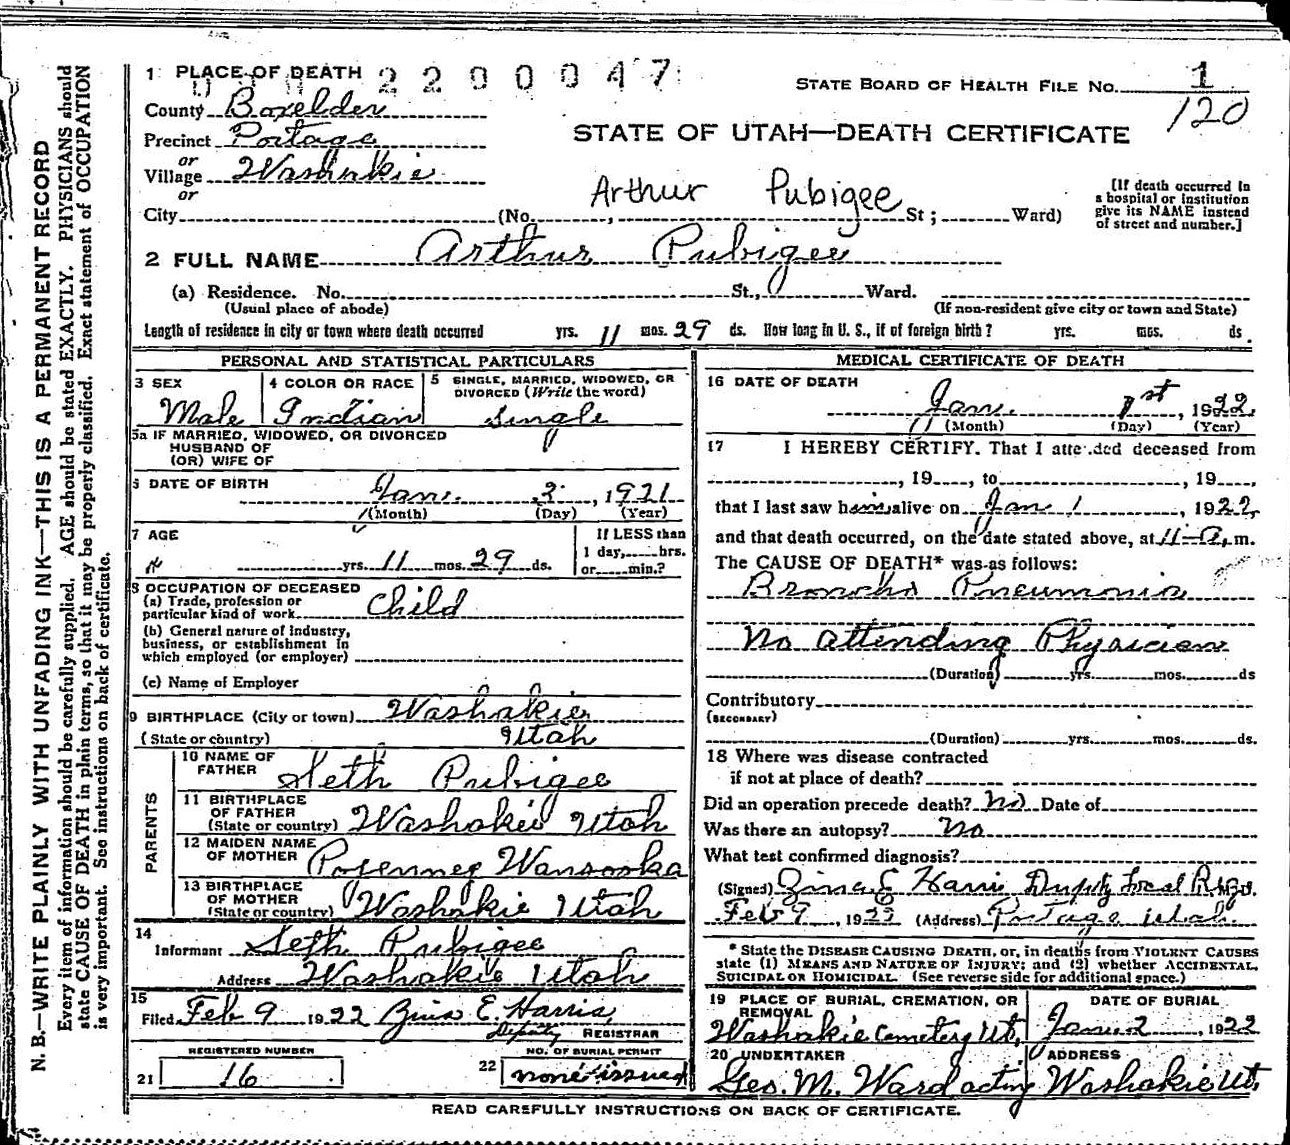 N. B.—WRITE PLAINLY WITH UNFADING INK—THIS IS A PERMANENT RECORD
Every item of information should be carefully supplied. AGE should be stated EXACTLY. PHYSICIANS should
state CAUSE OF DEATH in plain terms, so that it may be properly classified. Exact statement of OCCUPATION
is very important. See instructions on back of certificate.
1 PLACE OF DEATH 2200047
STATE BOARD OF HEALTH FILE No. 1
120
County Boxelder
Precinct Portage
or
Village Washakie
or
STATE OF UTAH—DEATH CERTIFICATE
Arthur Pubigee
City (No. , St; Ward)
[If death occurred in
a hospital or institution
give its NAME instead
of street and number.]
2 FULL NAME Arthur Pubigee
(a) Residence. No. St., Ward.
(Usual place of abode) (If non-resident give city or town and State)
Length of residence in city or town where death occurred yrs. 11 mos. 29 ds. How long in U. S., if of foreign birth? yrs. mos. ds.
PERSONAL AND STATISTICAL PARTICULARS
3 SEX Male
4 COLOR OR RACE Indian
5 SINGLE, MARRIED, WIDOWED, OR
DIVORCED (Write the word)
Single
5a IF MARRIED, WIDOWED, OR DIVORCED
HUSBAND OF
(OR) WIFE OF
6 DATE OF BIRTH Jan. 2, 1921
(Month) (Day) (Year)
7 AGE
yrs. 11 mos. 29 ds.
If LESS than
1 day, hrs.
or min.?
8 OCCUPATION OF DECEASED
(a) Trade, profession or
particular kind of work Child
(b) General nature of industry,
business, or establishment in
which employed (or employer)
(c) Name of Employer
9 BIRTHPLACE (City or town) Washakie
(State or country) Utah
PARENTS
10 NAME OF
FATHER Seth Pubigee
11 BIRTHPLACE
OF FATHER
(State or country) Washakie Utah
12 MAIDEN NAME
OF MOTHER Wansooka
13 BIRTHPLACE
OF MOTHER
(State or country) Washakie Utah
14
Informant Seth Pubigee
Address Washakie Utah
15
Filed Feb 9 1922 Zina E. Harris
Deputy REGISTRAR
REGISTERED NUMBER
21 16
NO. OF BURIAL PERMIT
22 none issued
MEDICAL CERTIFICATE OF DEATH
16 DATE OF DEATH
Jan. 1st, 1922.
(Month) (Day) (Year)
17 I HEREBY CERTIFY, That I attended deceased from
, 19 , to , 19 ,
that I last saw him alive on Jan 1, 1922,
and that death occurred, on the date stated above, at 11 A. m.
The CAUSE OF DEATH* was as follows:
Broncho Pneumonia
No attending Physician
(Duration) yrs. mos. ds
Contributory
(SECONDARY)
(Duration) yrs. mos. ds.
18 Where was disease contracted
if not at place of death?
Did an operation precede death? No Date of
Was there an autopsy? No
What test confirmed diagnosis?
(Signed) Zina E Harris Deputy Local Regs.
Feb 9, 1922 (Address) Portage Utah.
* State the DISEASE CAUSING DEATH, or, in deaths from VIOLENT CAUSES
state (1) MEANS AND NATURE OF INJURY; and (2) whether ACCIDENTAL,
SUICIDAL OR HOMICIDAL. (See reverse side for additional space.)
19 PLACE OF BURIAL, CREMATION, OR
REMOVAL
Washakie Cemetery Ut.
DATE OF BURIAL
Jan. 2, 1922
20 UNDERTAKER
Geo. M. Ward acting
ADDRESS
Washakie Ut.
READ CAREFULLY INSTRUCTIONS ON BACK OF CERTIFICATE.